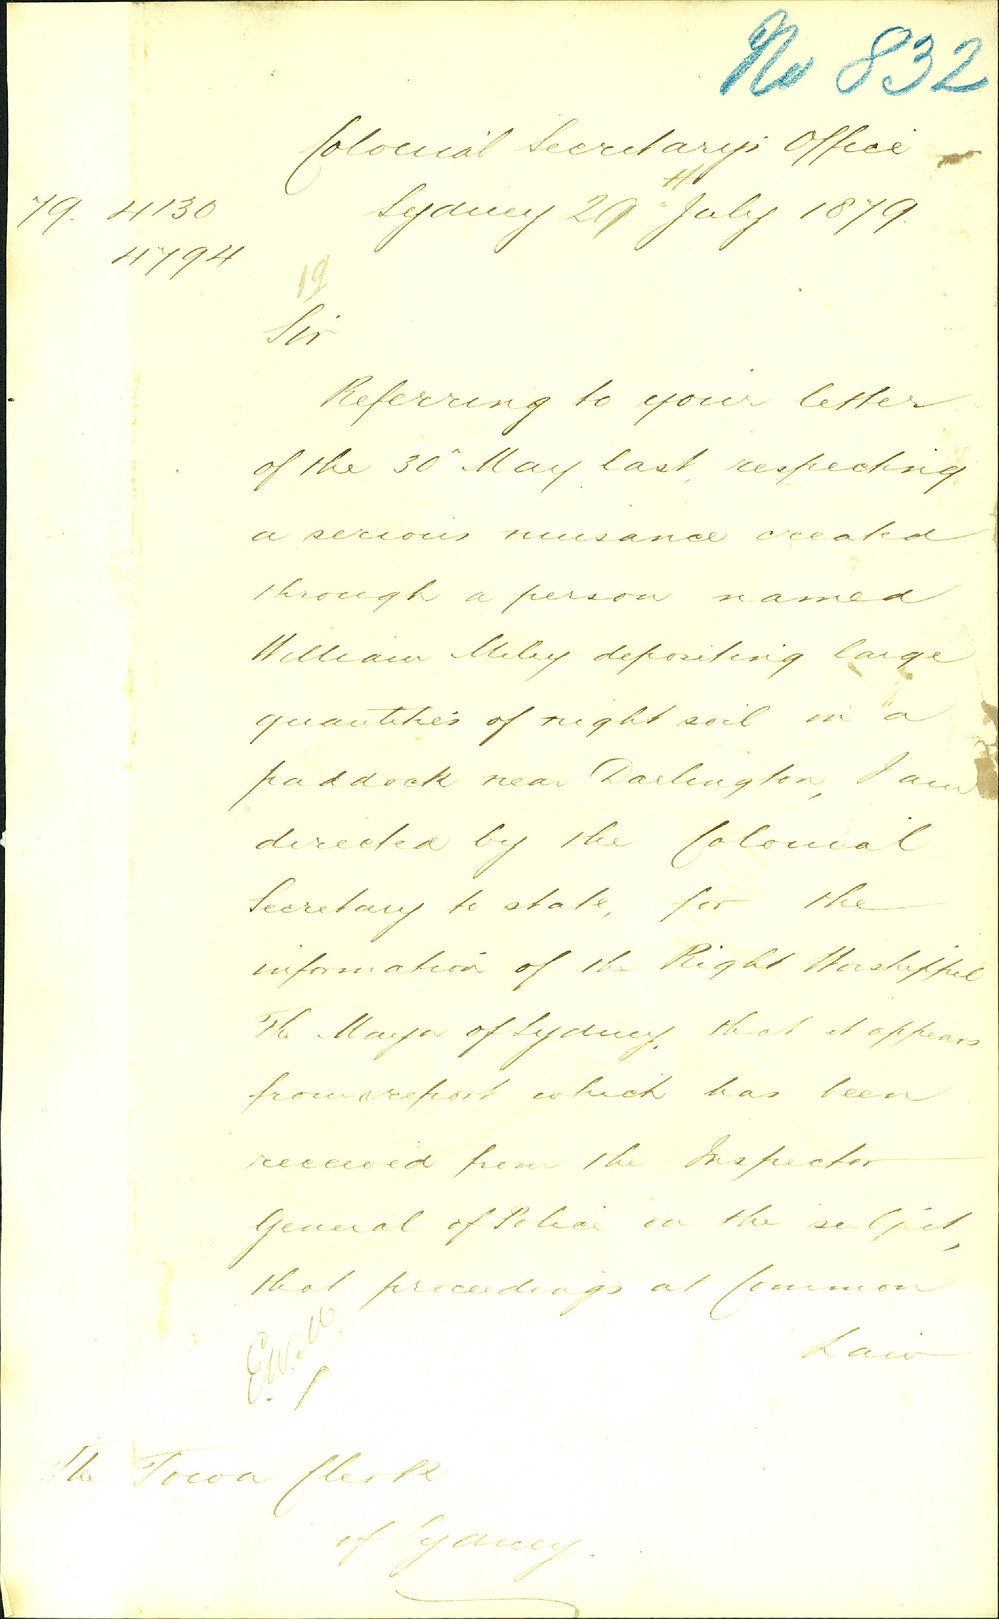 No 832
Colonial Secretary's Office
79. 4130 Sydney 29th July 1879.
4794
19
Sir
Referring to your letter
of the 30" May last, respecting
a serious nuisance created
through a person named
William Miley depositing large
quantities of night soil in a
paddock near Darlington, I am
directed by the Colonial
Secretary to state, for the
information of the Right Worshipful
The Mayor of Sydney, that it appears
from a report which has been
received from the Inspector
General of Police on the subject,
that proceedings at Common
Law
The Town Clerk
of Sydney.